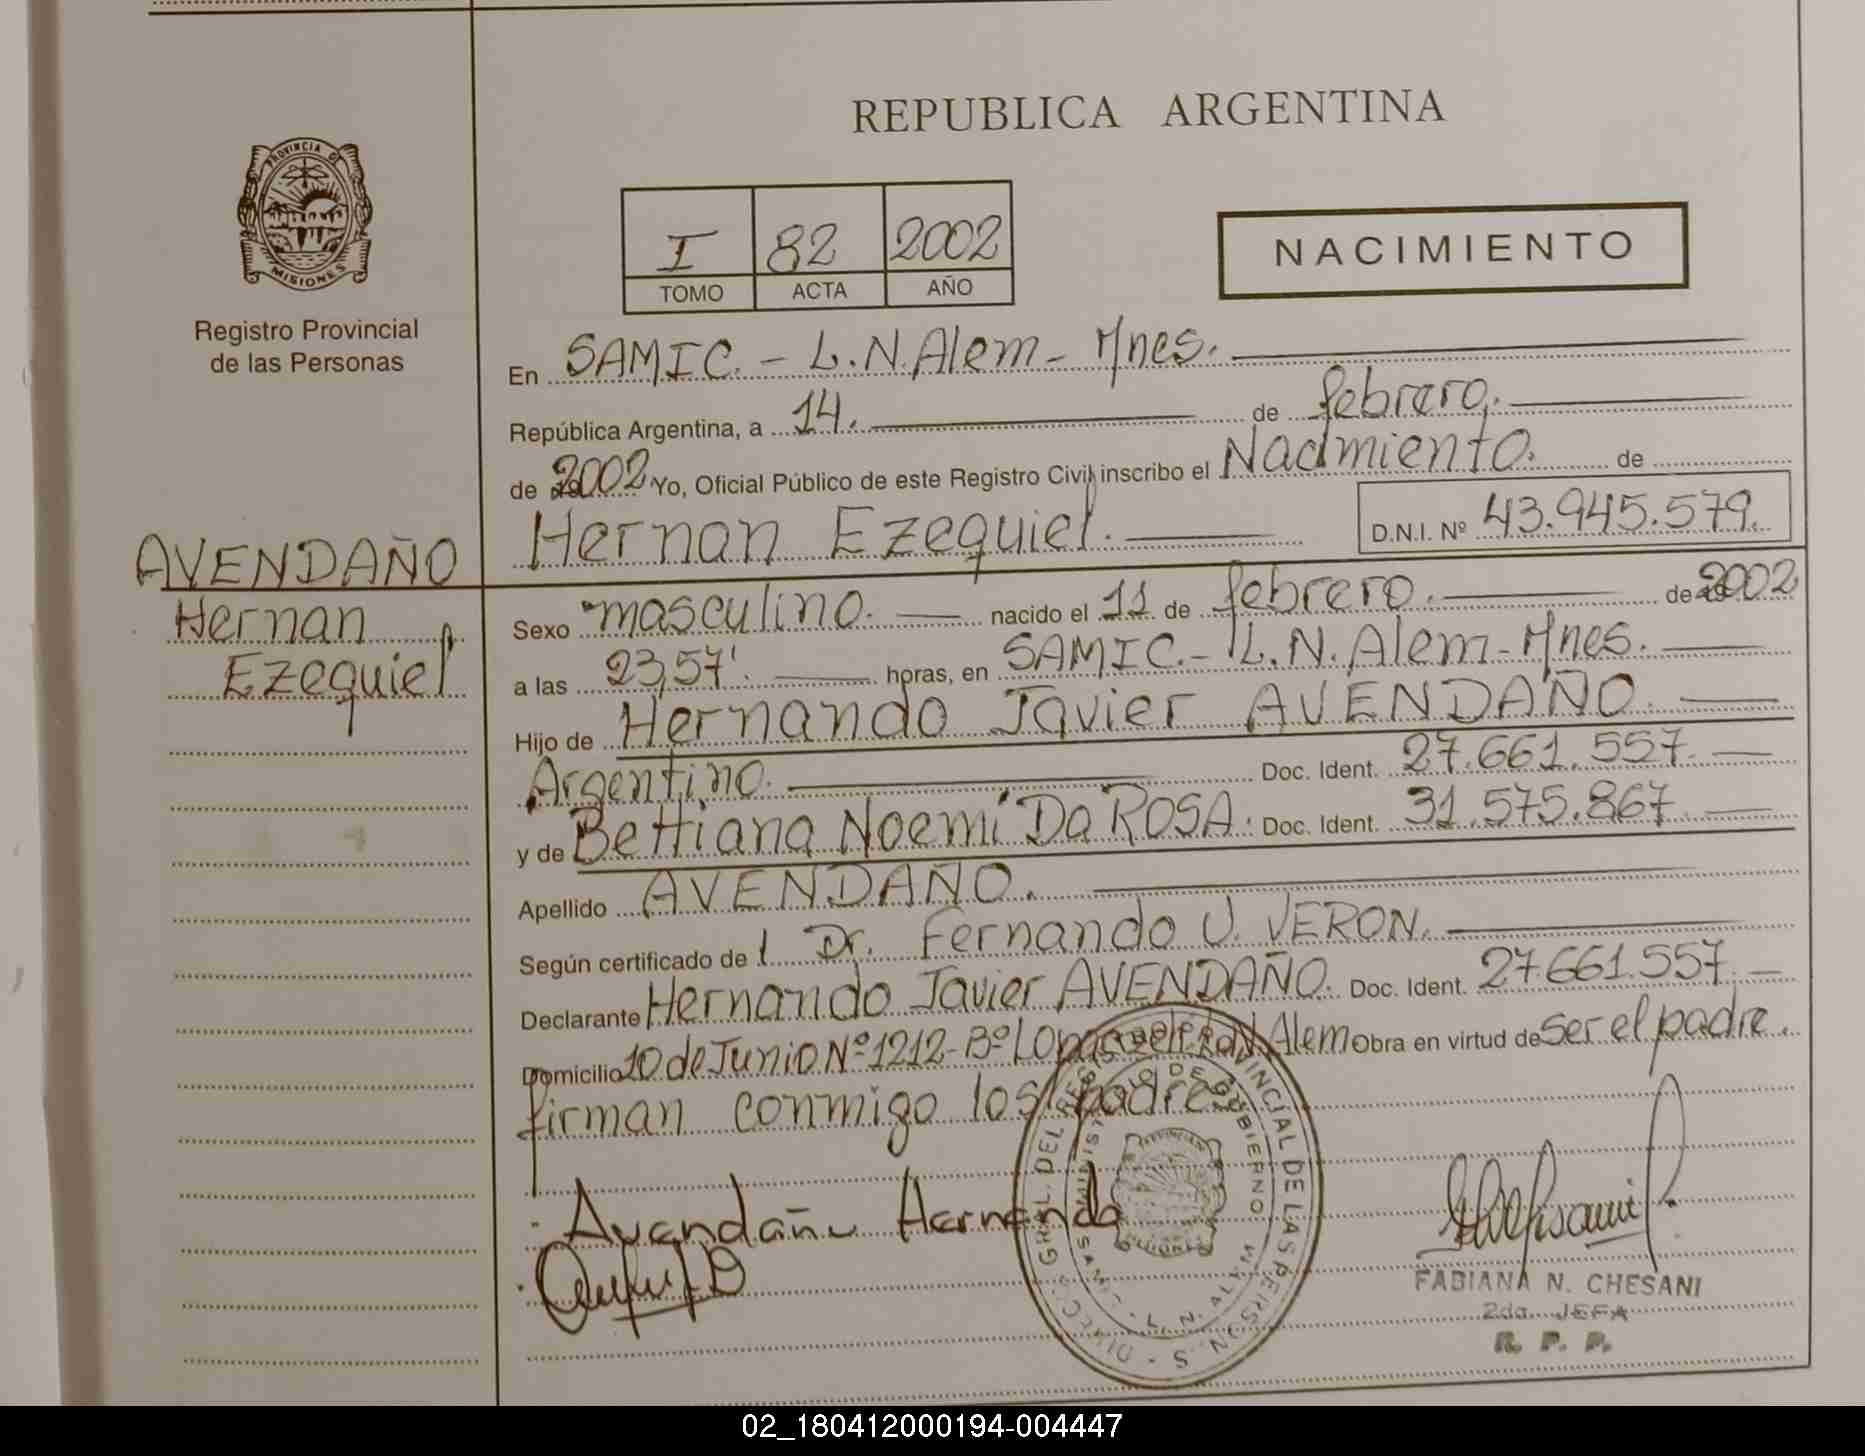 REPUBLICA ARGENTINA
PROVINCIA DE
MISIONES
Registro Provincial
de las Personas
I 82 2002
TOMO ACTA AÑO
NACIMIENTO
En SAMIC. - L. N. Alem - Mnes.
República Argentina, a 14. de febrero.
de 2002 Yo, Oficial Público de este Registro Civil inscribo el Nacimiento. de
Hernan Ezequiel. D.N.I. Nº 43.945.579.
AVENDAÑO
Hernan
Ezequiel
Sexo masculino. nacido el 11 de febrero. de 2002
a las 23,57'. horas, en SAMIC. - L. N. Alem - Mnes.
Hijo de Hernando Javier AVENDAÑO.
Argentino. Doc. Ident. 27.661.557.
y de Bettiana Noemí Da ROSA. Doc. Ident. 31.575.867.
Apellido AVENDAÑO.
Según certificado de l Dr. Fernando U. VERON.
Declarante Hernando Javier AVENDAÑO. Doc. Ident. 27.661.557.
Domicilio 10 de Junio Nº 1212 - Bº N. Alem Obra en virtud de ser el padre.
firman conmigo los padres
Avendaño Hernando
FABIANA N. CHESANI
2da. JEFA
R. P. P.
02_180412000194-004447